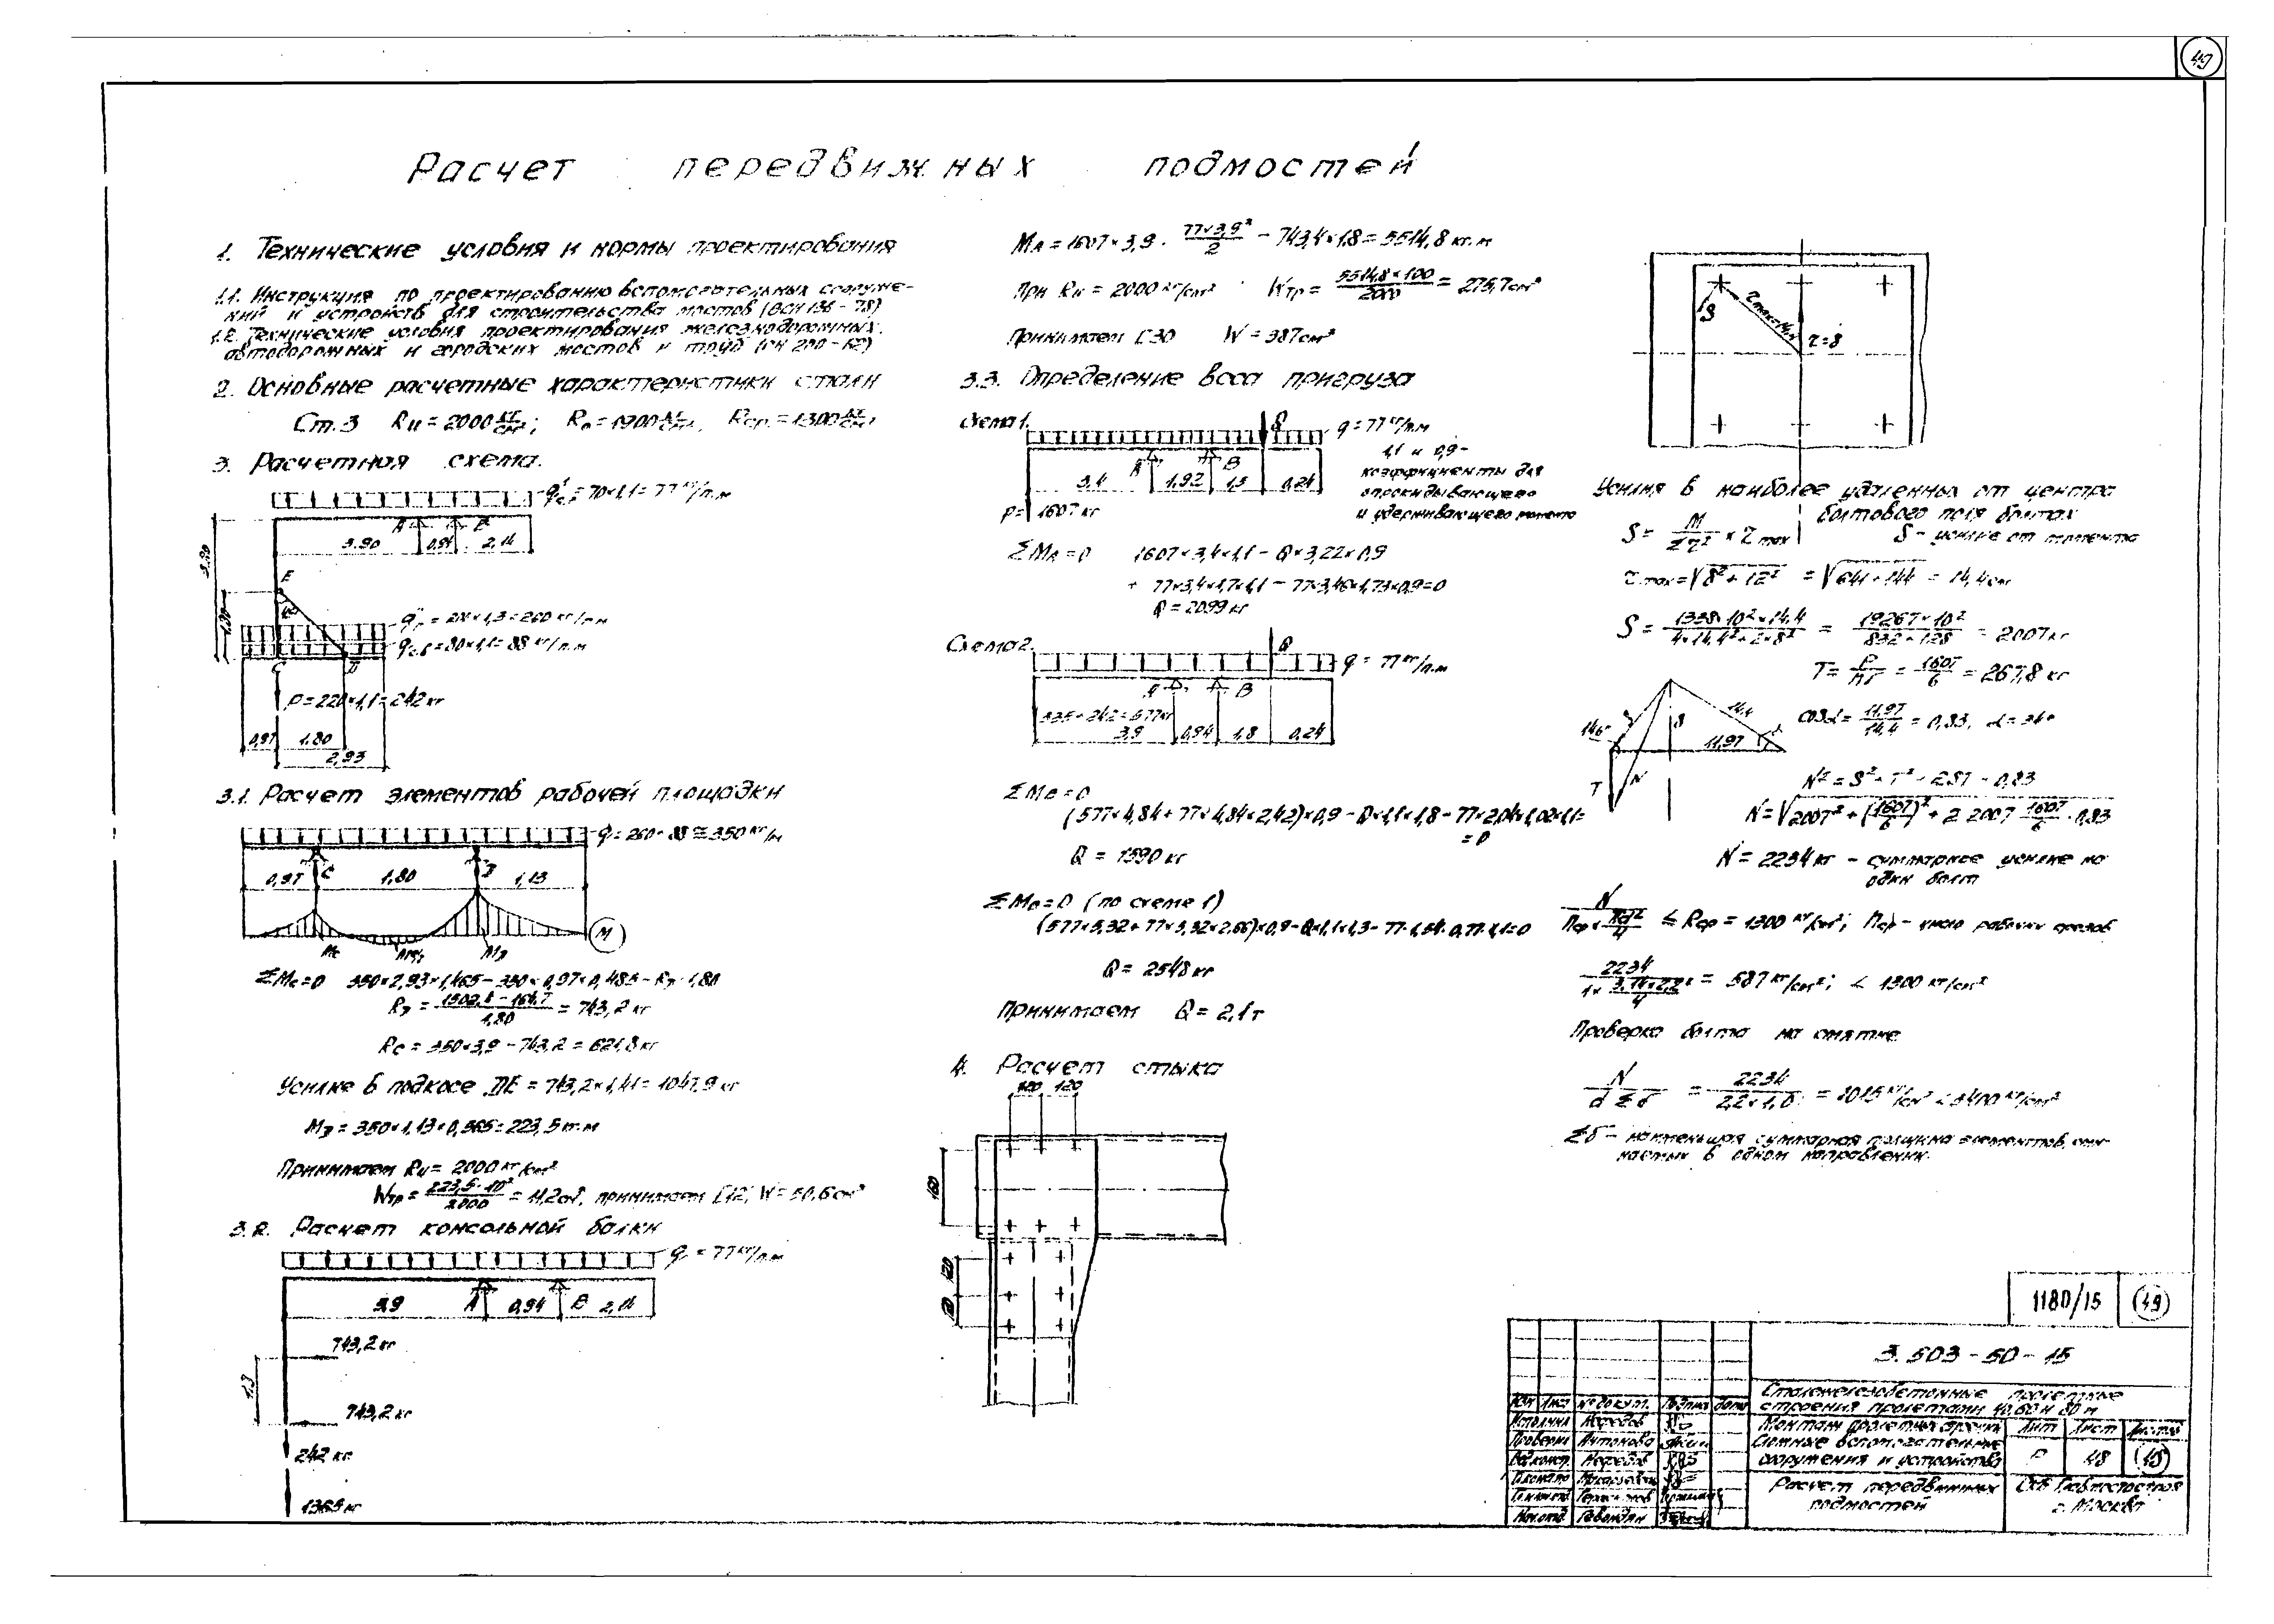 49
Расчет передвижных подмостей
1. Технические условия и нормы проектирования
1.1. Инструкция по проектированию вспомогательных сооруже-
ний и устройств для строительства мостов (ВСН 136-78)
1.2. Технические условия проектирования железнодорожных,
автодорожных и городских мостов и труб (СН 200-62)
2. Основные расчетные характеристики стали
Ст. 3 Rи = 2000 кг/см²; Rо = 1900 кг/см²; Rср. = 1300 кг/см²
3. Расчетная схема.
= 70×1,1 = 77 кг/п.м
A B
3.90 0,94 2,14
3.90
E
1.80
= 200×1,3 = 260 кг/п.м
= 80×1,1 = 88 кг/п.м
C D
P = 220×1,1 = 242 кг
0,97 1.80
2,93
3.1. Расчет элементов рабочей площадки
q = 260+88 ≅ 350 кг/м
0,97 C 1,80 D 1,13
M
ΣMc=0 350×2,93×1,465 − 350×0,97×0,485 − R 1,80
= 743,2 кг
Rc = 350×3,9 − 743,2 = 621,8 кг
Усилие в подкосе DE = 743,2×1,41 = 1047,9 кг
= 350×1,13×0,565 = 223,5 кг.м
Принимаем Rи = 2000 кг/см²
Wтр = 223,5·10²/2000 = 11,2 см³, принимаем [12; W = 50,6 см³
3.2. Расчет консольной балки
q = 77 кг/п.м
3,9 A 0,94 B 2,14
743,2 кг
1,9
743,2 кг
242 кг
1365 кг
MA = 1607×3,9 · 77×3,9²/2 − 743,4×1,8 = 5514,8 кг.м
При Rи = 2000 кг/см² Wтр = 5514,8×100/2000 = 275,7 см³
Принимаем [30 W = 387 см³
3.3. Определение веса пригруза
Схема 1. Q q = 77 кг/п.м
A B
3,4 1,92 1,3 0,24
P = 1607 кг
1,1 и 0,9 -
коэффициенты для
опрокидывающего
и удерживающего момента
ΣMA=0 1607×3,4×1,1 − Q×3,22×0,9
+ 77×3,4×1,7×1,1 − 77×3,46×1,73×0,9=0
Q = 2099 кг
Схема 2. Q q = 77 кг/п.м
A B
335+242=577кг
3,9 0,94 1,8 0,24
ΣMB=0
(577×4,84+77×4,84×2,42)×0,9 − Q×1,1×1,8 − 77×2,04×1,02×1,1=
= 0
Q = 1590 кг
ΣMB=0 (по схеме 1)
(577×5,32+77×5,32×2,66)×0,9−Q×1,1×1,3−77·1,54·0,77·1,1=0
Q = 2548 кг
Принимаем Q = 2,1 т
4. Расчет стыка
120 120
160
120
S
τmax=14,4
τ=8
Усилия в наиболее удаленных от центра
болтового поля болтах
S = M/Στ² × τmax S - усилие от момента
τmax = √8²+12² = √64+144 = 14,4 см
S = 1338×10²×14.4/4×14,4²+2×8² = 19267×10²/832+128 = 2007 кг
T = P/nб = 1607/6 = 267,8 кг
14,4
11,97
T N
cosα = 11,97/14,4 = 0,83, α = 34°
N² = S²+T²+2ST·0,83
N = √2007² + (1607/6)² + 2·2007·1607/6·0,83
N = 2234 кг - суммарное усилие на
один болт
N/nср×πd²/4 ≤ Rср = 1300 кг/см²; nср - число рабочих срезов
2234/1×3.14×2,2²/4 = 587 кг/см²; < 1300 кг/см²
Проверка болта на смятие
N/dΣδ = 2234/2,2×1,0 = 1015 кг/см² < 3400 кг/см²
Σδ - наименьшая суммарная толщина элементов, сми-
наемых в одном направлении.
1180/15 49
3.503-50-15
Сталежелезобетонные пролетные
строения пролетами 40, 60 и 80 м
Изм Лист № докум. Подпись Дата
Исполнил Нефедов
Проверил Антонова
Нефедов
Гевондян
Монтаж пролетных строений
Сложные вспомогательные
сооружения и устройства
Лит Лист Листов
Р 48
Расчет передвижных
подмостей
СКБ Главмостостроя
г. Москва